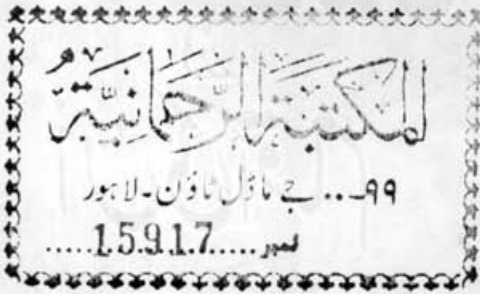 المكتبة الرحمانية
۹۹... جے ماڈل ٹاؤن۔ لاہور
نمبر.....15917.....